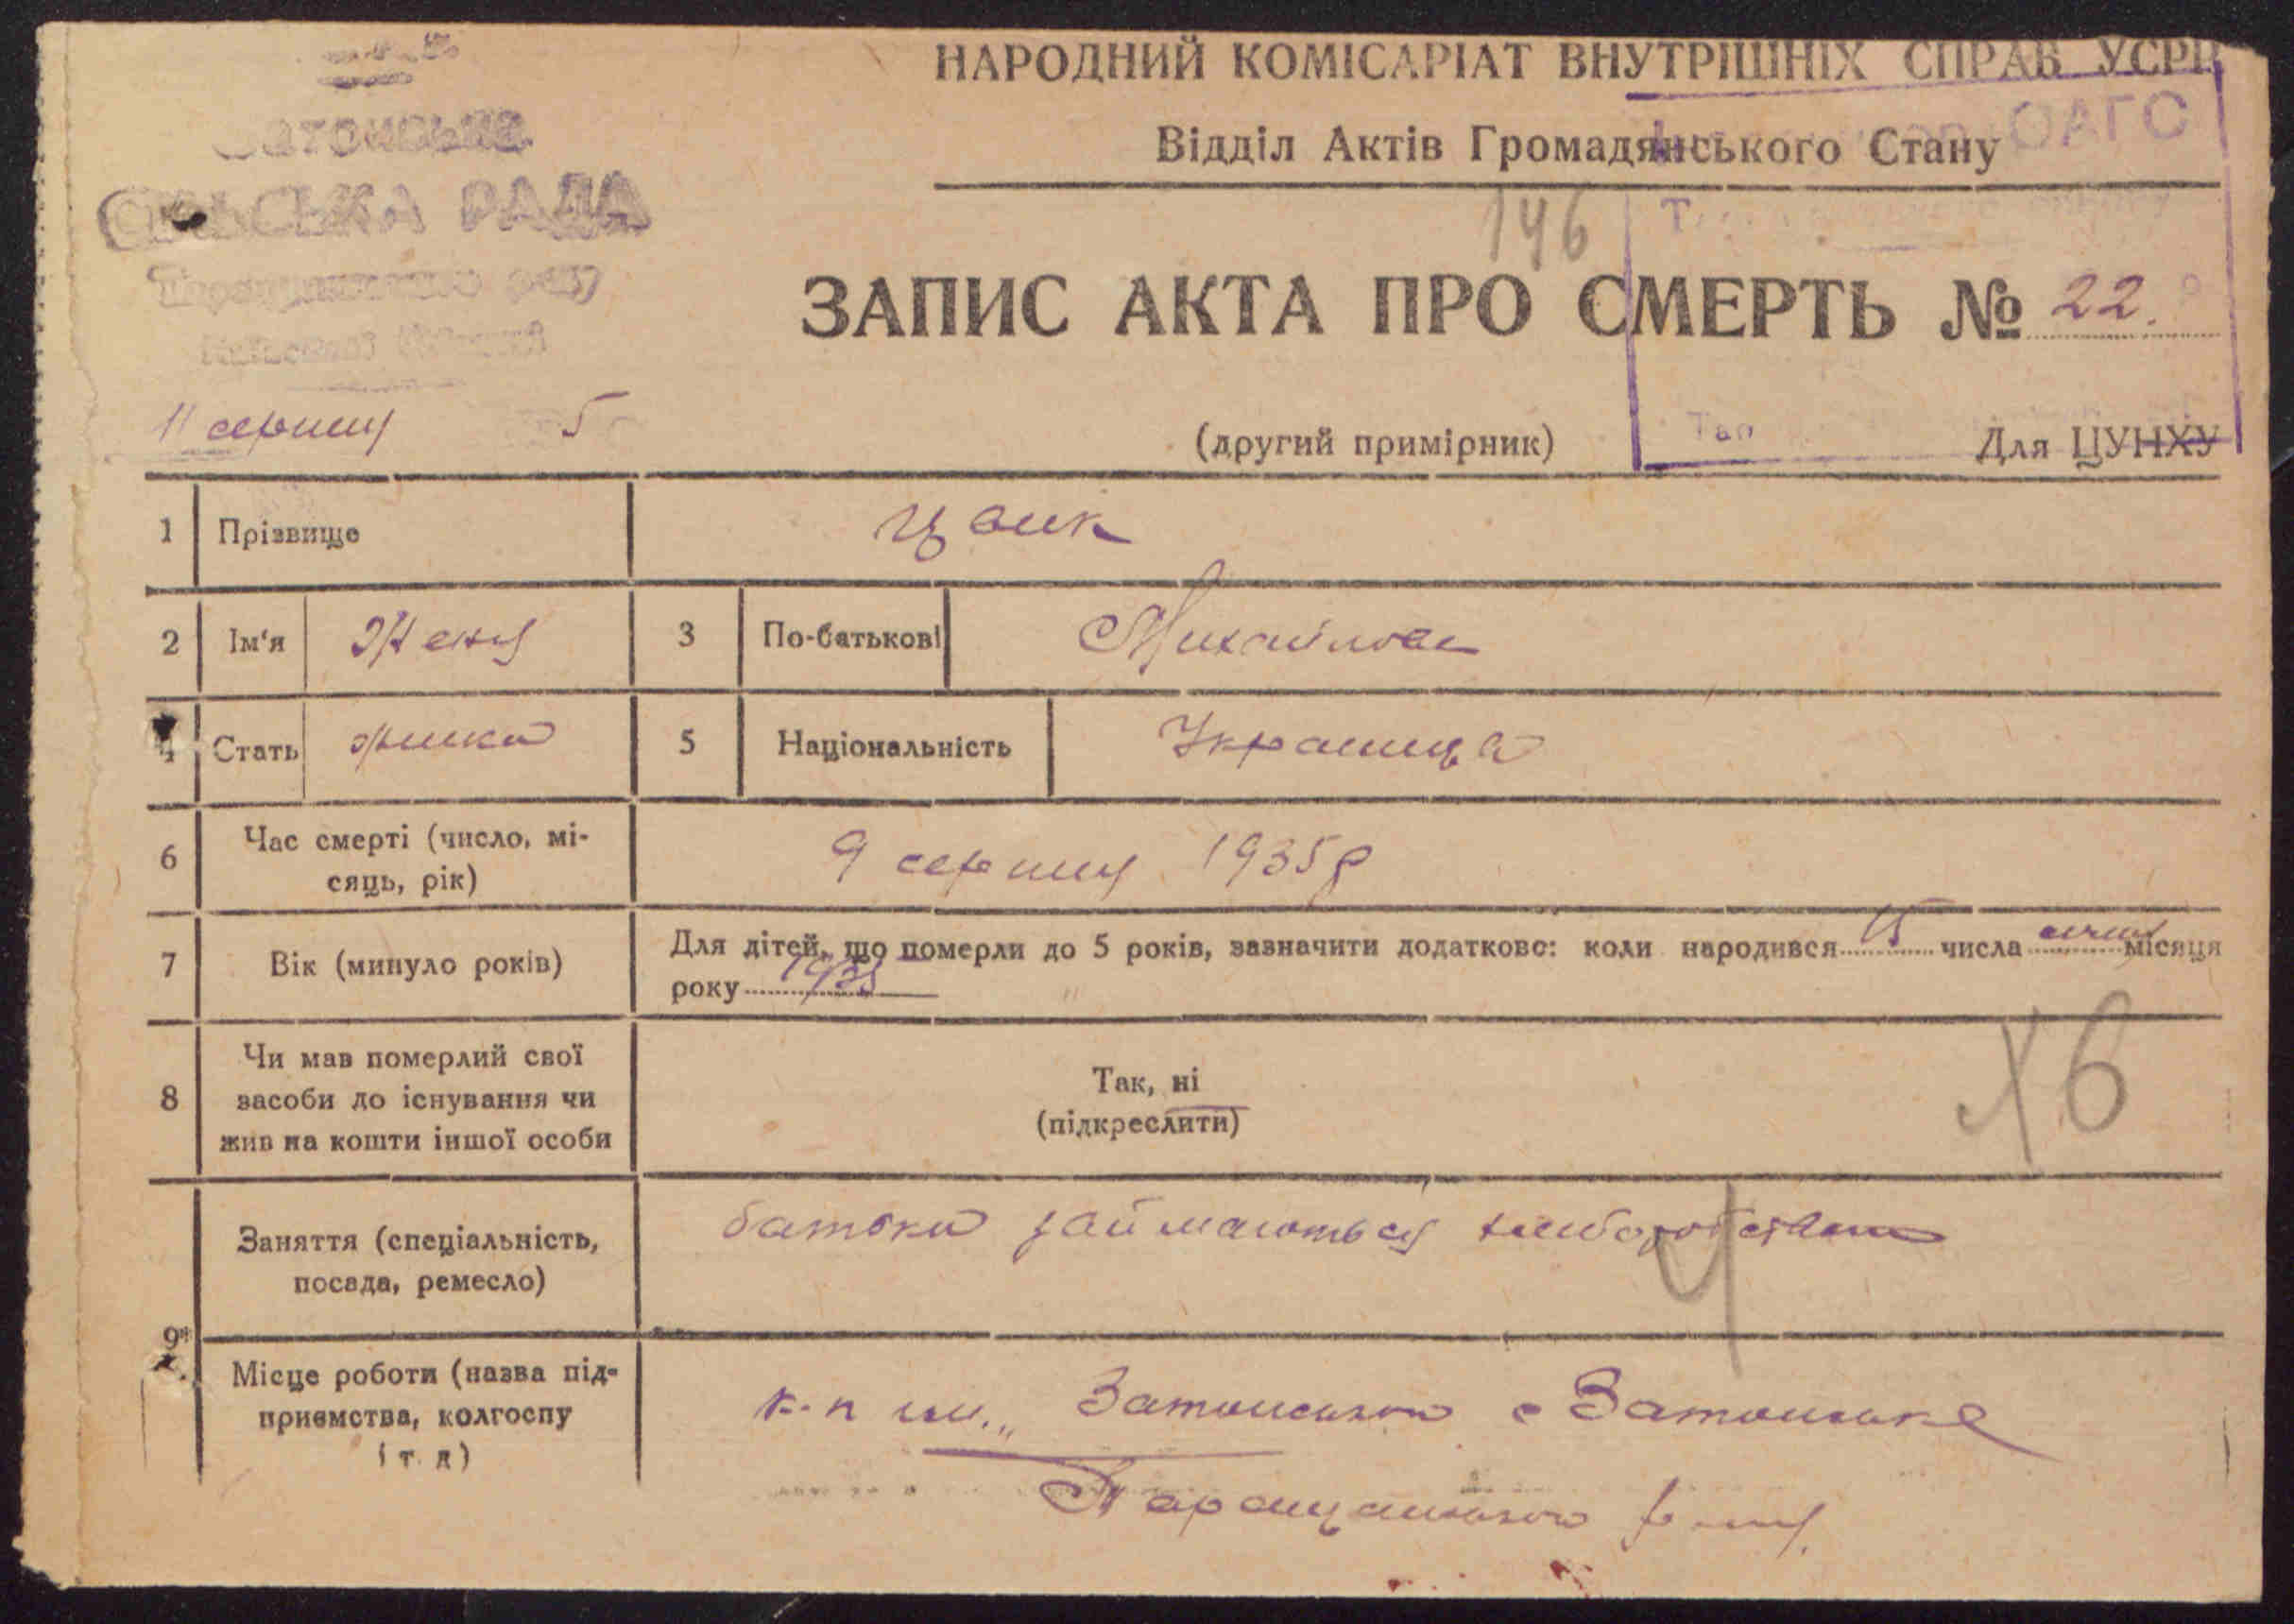 НАРОДНИЙ КОМІСАРІАТ ВНУТРІШНІХ СПРАВ УСРР
Відділ Актів Громадянського Стану
ОАГС
СІЛЬСЬКА РАДА
146
ЗАПИС АКТА ПРО СМЕРТЬ № 22.
11 серпня 5
(другий примірник)
Для ЦУНХУ
1 Прізвище Цвик
2 Ім'я Женя 3 По-батькові Михайловна
4 Стать жінка 5 Національність Українка
6 Час смерті (число, мі-
сяць, рік) 9 серпня 1935 р
7 Вік (минуло років) Для дітей, що померли до 5 років, зазначити додатково: коли народився 15 числа січня місяця
року 1935
8 Чи мав померлий свої
засоби до існування чи
жив на кошти іншої особи
Так, ні
(підкреслити)
Х6
9 Заняття (спеціальність,
посада, ремесло) батьки займаються хліборобством
4
Місце роботи (назва під-
приємства, колгоспу
і т. д) к-п ім. „Затонського с Затонське
Таращанського р-ну